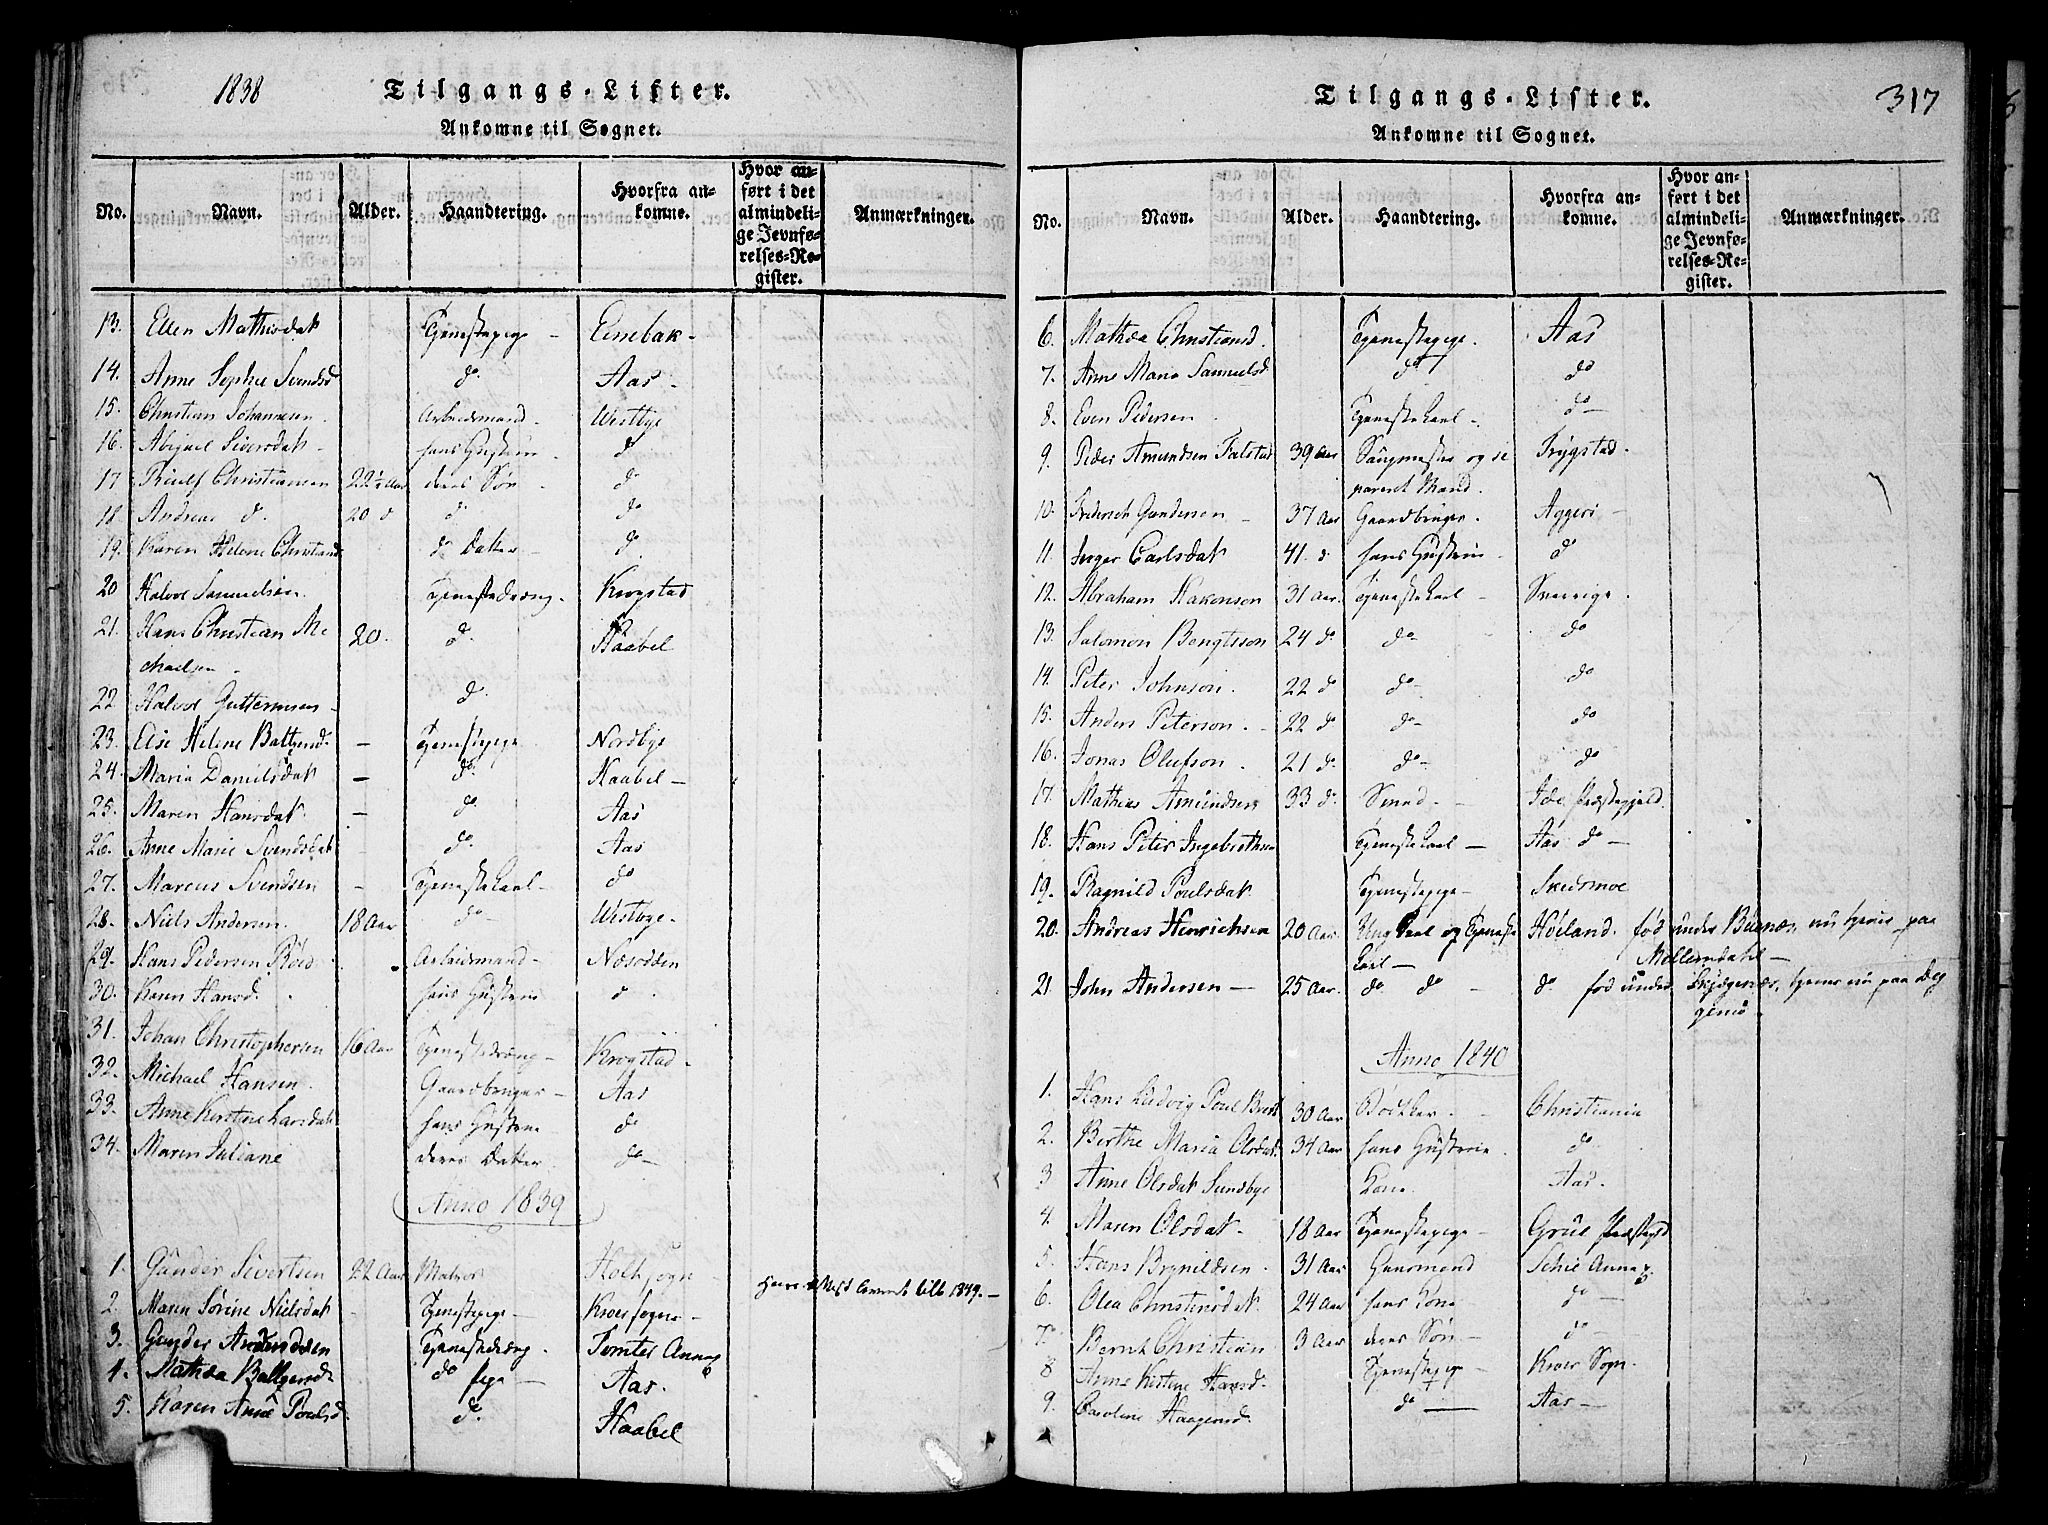 1838
Tilgangs-Lister.
Ankomne til Sognet.
No. Navn. Alder. Haandtering. Hvorfra ankomne. Hvor anført i det almindelige Jevnførelses-Register. Anmærkninger.
13. Ellen Mathisdat Tjenestepige - Enebak -
14. Anne Sophie Svendsd do Aas -
15. Christian Johannesen Arbeidsmand - Westbye
16. Abigael Siversdat - hans Hustru - do
17 Christiansen 22½ Aar deres Søn - do
18 Andreas do 20 d do do
19. Karen Helene Christiansd do Datter - do
20 Halvor Samuelsen Tjenestedræng - Krogstad
21. Hans Christian Mi- 20. do Haabel
chaelsen -
22 Halvor Guttormsen - do
23. Else Helene - Tjenestepige Nordbye
24. Maria Danielsdat - do Haabel -
25. Maren Hansdat - do Aas
26. Anne Marie Svendsdat - do Aas
27. Marcus Svendsen - Tjenestekarl - do
28. Niels Andersen. 18 Aar do - Westbye -
29. Hans Pedersen Arbeidsmand - Næsodden
30. Karen Hansd. hans Hustrue d
31. Johan Christophersen 16 Aar Tjenestedræng - Krogstad -
32. Michael Hansen. Gaardbruger - Aas
33. Anne Kirstine Larsdat hans Hustrue do
34. Maren Juliane deres Datter do -
Anno 1839
1. Gunder Sivertsen 22 Aar Holth sogn
2. Maren Sørine Nielsdat - Tjenestepige - Kroer sogn -
1849. -
3. Gunder Tjenestedreng - Tomter Annex
4. Mathea do pige - Aas.
5. Karen Anne Poulsd. do Haabel
Tilgangs-Lister.
317
Ankomne til Sognet.
No. Navn. Alder. Haandtering. Hvorfra ankomne. Hvor anført i det almindelige Jevnførelses-Register. Anmærkninger.
6. Mathea Christiansd. Tjenestepige. Aas
7. Anne Maria Samuelsd do do
8. Even Pedersen Tjenestekarl - do -
9. Peder Amundsen 39 Aar Saugmester og se- Trygstad -
pareret Mand.
10. Frederich Gundersen - 37 Aar Gaardbruger - Aggers -
11. Inger Carlsdat 41. d hans Hustrue - do
12. Abraham Hakonson 31 Aar. Tjenestekarl - Sverrige.
13. Salomon Bengtsson 24 do do - do
14. Peter Johnson. 22 do do - do
15. Anders Peterson - 22 do do - do
16. Jonas Olufson. 21 do do - do
17. Mathias Amundsen 33 do Smed - Præstegjeld.
18. Hans Peter Ingebrethsen Tjenestekarl - Aas do -
19. Ragnild Poulsdat Tjenestepige - Skedsmoe
20. Andreas Henrichsen 20 Aar Ungkarl og Tjeneste- Høland. fød under nu tjener paa
karl - Mellemdahl -
21. John Andersen - 25 Aar. do do - do fød under tjener nu paa
Anno 1840
1. Hans Ludvig Poul 30 Aar Bødtker - Christiania
2. Berthe Maria Olsdat. 34 Aar hans Hustrue - do
3 Anne Olsdat Sundbye Kone. Aas -
4. Maren Olsdat - 18 Aar Tjenestepige - Grue Præstegjd
5. Hans Brynildsen. 31 Aar Huusmand Schie Annex
6. Olea Christensdat 24 Aar hans Kone do -
7. Bernt Christian 3 Aar deres Søn - do -
8 Anne Kirstine Hansd. Tjenestepige Kroer Sogn.
9. Caroline Haagensd. do - Aas -